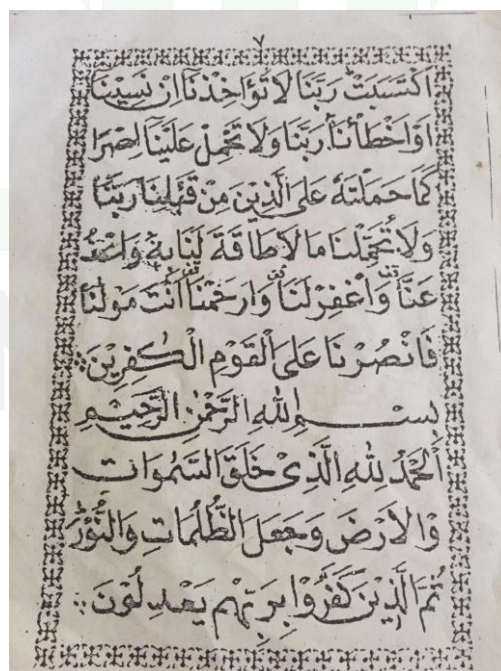 ٧
اكْتَسَبَتْ رَبَّنَا لَا تُؤَاخِذْنَا اِنْ نَسِيْنَا
اَوْ اَخْطَأْنَا رَبَّنَا وَلَا تَحْمِلْ عَلَيْنَا اِصْرًا
كَمَا حَمَلْتَهٗ عَلَى الَّذِيْنَ مِنْ قَبْلِنَا رَبَّنَا
وَلَا تُحَمِّلْنَا مَا لَا طَاقَةَ لَنَا بِهٖ وَاعْفُ
عَنَّا وَاغْفِرْ لَنَا وَارْحَمْنَا اَنْتَ مَوْلٰنَا
فَانْصُرْنَا عَلَى الْقَوْمِ الْكٰفِرِيْنَ
بِسْمِ اللهِ الرَّحْمٰنِ الرَّحِيْمِ
اَلْحَمْدُ لِلّٰهِ الَّذِيْ خَلَقَ السَّمٰوَاتِ
وَالْاَرْضَ وَجَعَلَ الظُّلُمَاتِ وَالنُّوْرَ
ثُمَّ الَّذِيْنَ كَفَرُوْا بِرَبِّهِمْ يَعْدِلُوْنَ